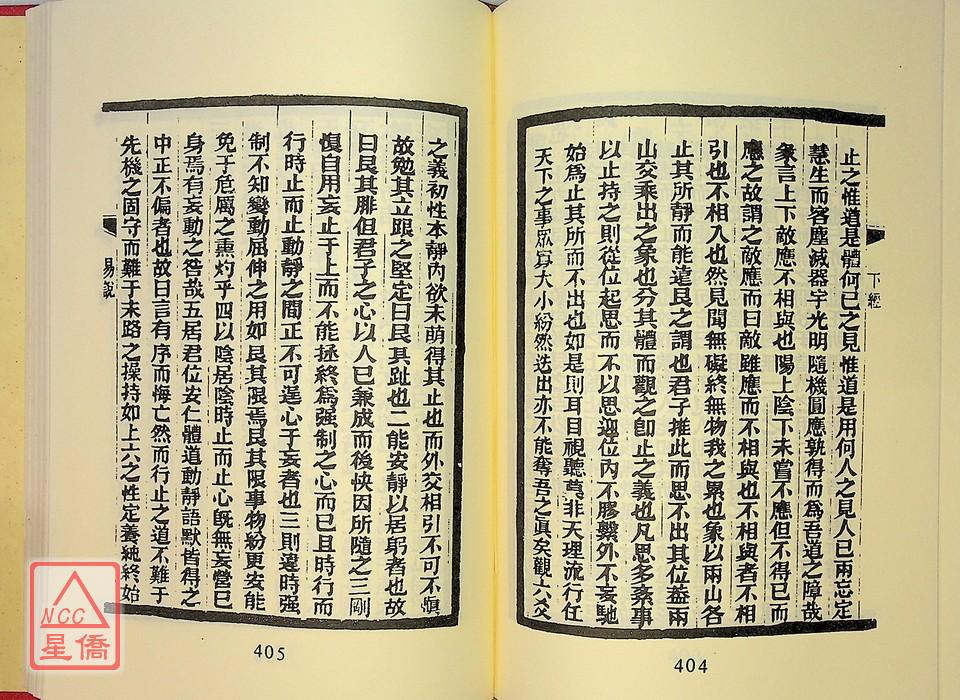 止之惟道是體何已之見惟道是用何人之見人已兩忘定
慧生而客塵滅器宇光明隨機圓應孰得而為吾道之障哉
彖言上下敵應不相與也陽上陰下未嘗不應但不得已而
應之故謂之敵應而曰敵雖應而不相與也不相與者不相
引也不相入也然見聞無礙終無物我之累也象以兩山各
止其所靜而能遠艮之謂也君子推此而思不出其位蓋兩
山交乘出之象也分其體而觀之卽止之義也凡思多紊事
以止持之則從位起思而不以思遷位內不膠繫外不妄馳
始為止其所而不出也如是則耳目視聽莫非天理流行任
天下之事眾寡大小紛然迭出亦不能奪吾之眞矣觀六爻
下經
404
之義初性本靜內欲未萌得其止也而外交相引不可不愼
故勉其立跟之堅定曰艮其趾也二能安靜以居躬者也故
曰艮其腓但君子之心以人已兼成而後快因所隨之三剛
愎自用妄止于上而不能拯終為强制之心而已且時行而
行時止而止動靜之間正不可逞心于妄者也三則違時强
制不知變動屈伸之用如艮其限焉艮其限事物紛更安能
免于危厲之熏灼乎四以陰居陰時止而止心旣無妄營已
身焉有妄動之咎哉五居君位安仁體道動靜語默皆得之
中正不偏者也故曰言有序而悔亡然而行止之道不難于
先機之固守而難于末路之操持如上六之性定養純終始
易說
405
NCC
星僑